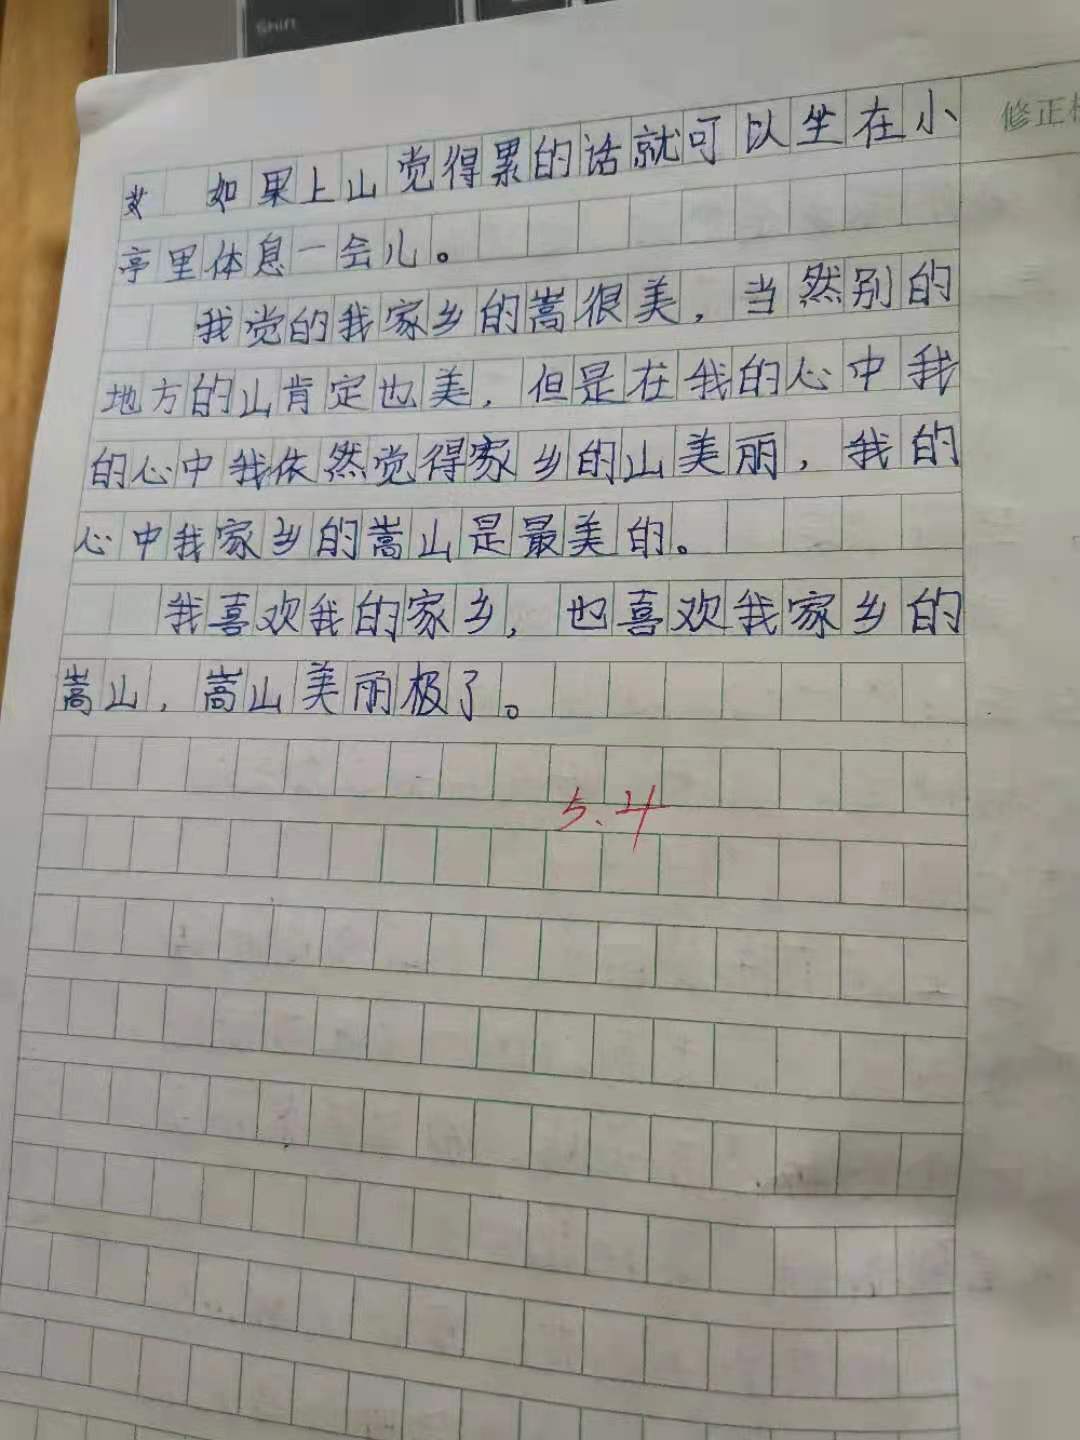 Shift
修正
如果上山觉得累的话就可以坐在小
亭里体息一会儿。
我党的我家乡的嵩很美，当然别的
地方的山肯定也美，但是在我的心中我
的心中我依然觉得家乡的山美丽，我的
心中我家乡的嵩山是最美的。
我喜欢我的家乡，也喜欢我家乡的
嵩山，嵩山美丽极了。
5.4